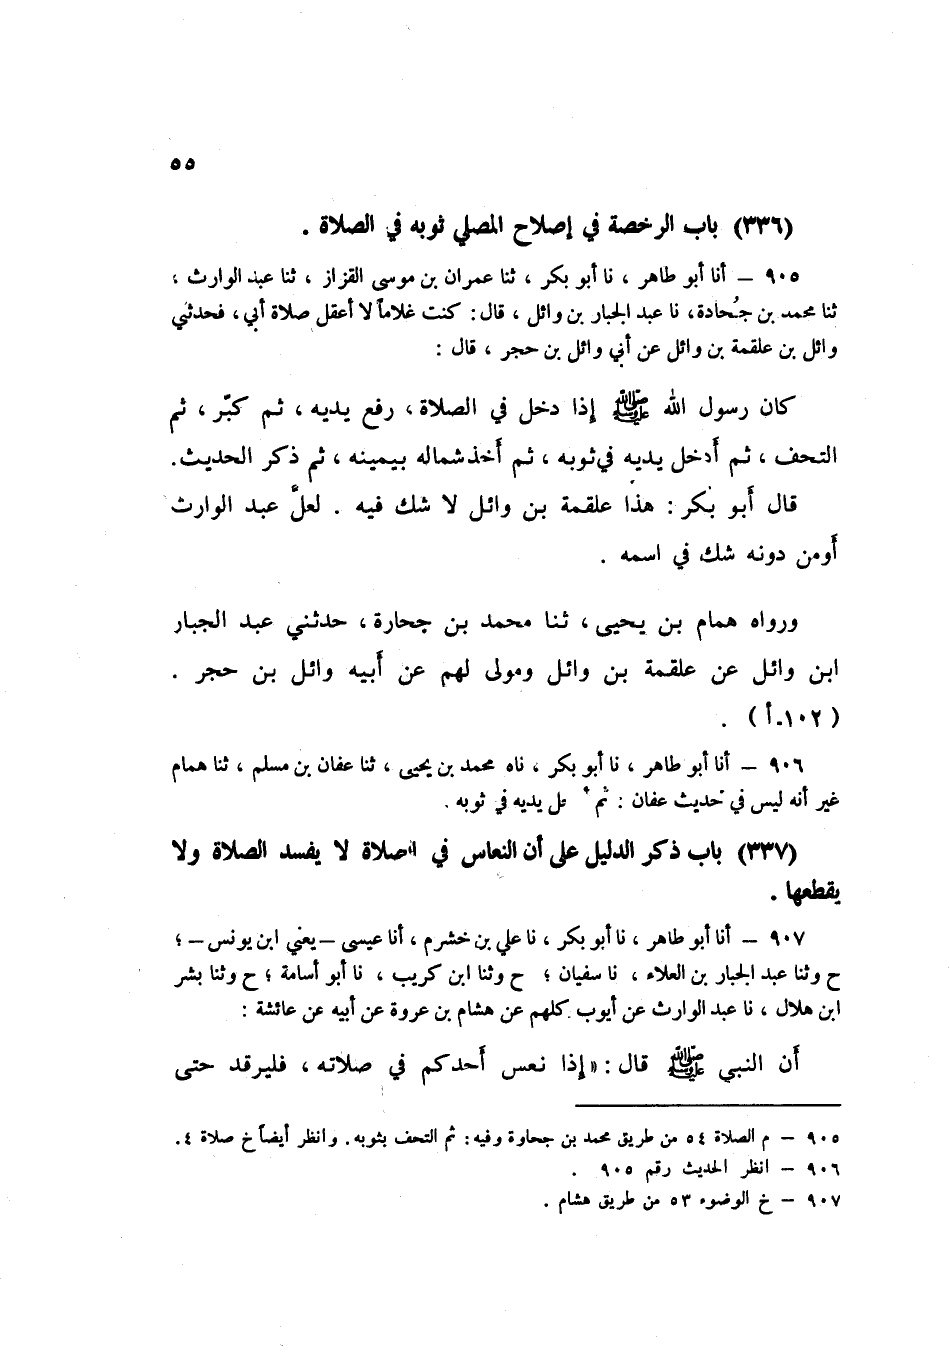 ٥٥
(٣٣٦) باب الرخصة في إصلاح المصلي ثوبه في الصلاة .
٩٠٥ – أنا أبو طاهر ، نا أبو بكر ، ثنا عمران بن موسى القزاز ، ثنا عبد الوارث ،
ثنا محمد بن جُحادة، نا عبد الجبار بن وائل ، قال: كنت غلاماً لا أعقل صلاة أبي، فحدثني
وائل بن علقمة بن وائل عن أبي وائل بن حجر ، قال :
كان رسول الله ﷺ إذا دخل في الصلاة، رفع يديه، ثم كبّر، ثم
التحف، ثم أدخل يديه في ثوبه، ثم أخذ شماله بيمينه، ثم ذكر الحديث.
قال أبو بكر : هذا علقمة بن وائل لا شك فيه . لعلَّ عبد الوارث
أومن دونه شك في اسمه .
ورواه همام بن يحيى، ثنا محمد بن جحارة، حدثني عبد الجبار
ابن وائل عن علقمة بن وائل ومولى لهم عن أبيه وائل بن حجر .
(١٠٢-أ) .
٩٠٦ – أنا أبو طاهر ، نا أبو بكر ، ناه محمد بن يحيى ، ثنا عفان بن مسلم ، ثنا همام
غير أنه ليس في حديث عفان : ثم يديه في ثوبه .
(٣٣٧) باب ذكر الدليل على أن النعاس في الصلاة لا يفسد الصلاة ولا
يقطعها .
٩٠٧ – أنا أبو طاهر ، نا أبو بكر ، نا علي بن خشرم ، أنا عيسى –يعني ابن يونس– ؛
ح وثنا عبد الجبار بن العلاء ، نا سفيان ؛ ح وثنا ابن كريب ، نا أبو أسامة ؛ ح وثنا بشر
ابن هلال ، نا عبد الوارث عن أيوب كلهم عن هشام بن عروة عن أبيه عن عائشة :
أن النبي ﷺ قال: «إذا نعس أحدكم في صلاته، فليرقد حتى
٩٠٥ – م الصلاة ٥٤ من طريق محمد بن جحاوة وفيه: ثم التحف بثوبه. وانظر أيضاً خ صلاة ٤.
٩٠٦ – انظر الحديث رقم ٩٠٥ .
٩٠٧ – خ الوضوء ٥٣ من طريق هشام .